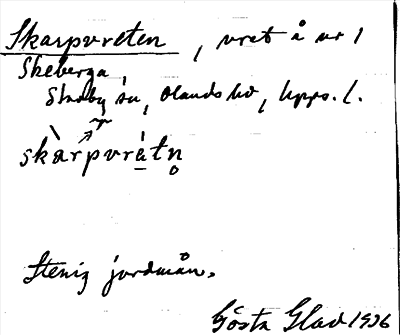 Skarpvreten, vret å nr 1
Skeberga,
Skäfthy sn, Olands hd, Upps. l.
skàrpvrétn̥
Stenig jordmån.
Gösta Glad 1936